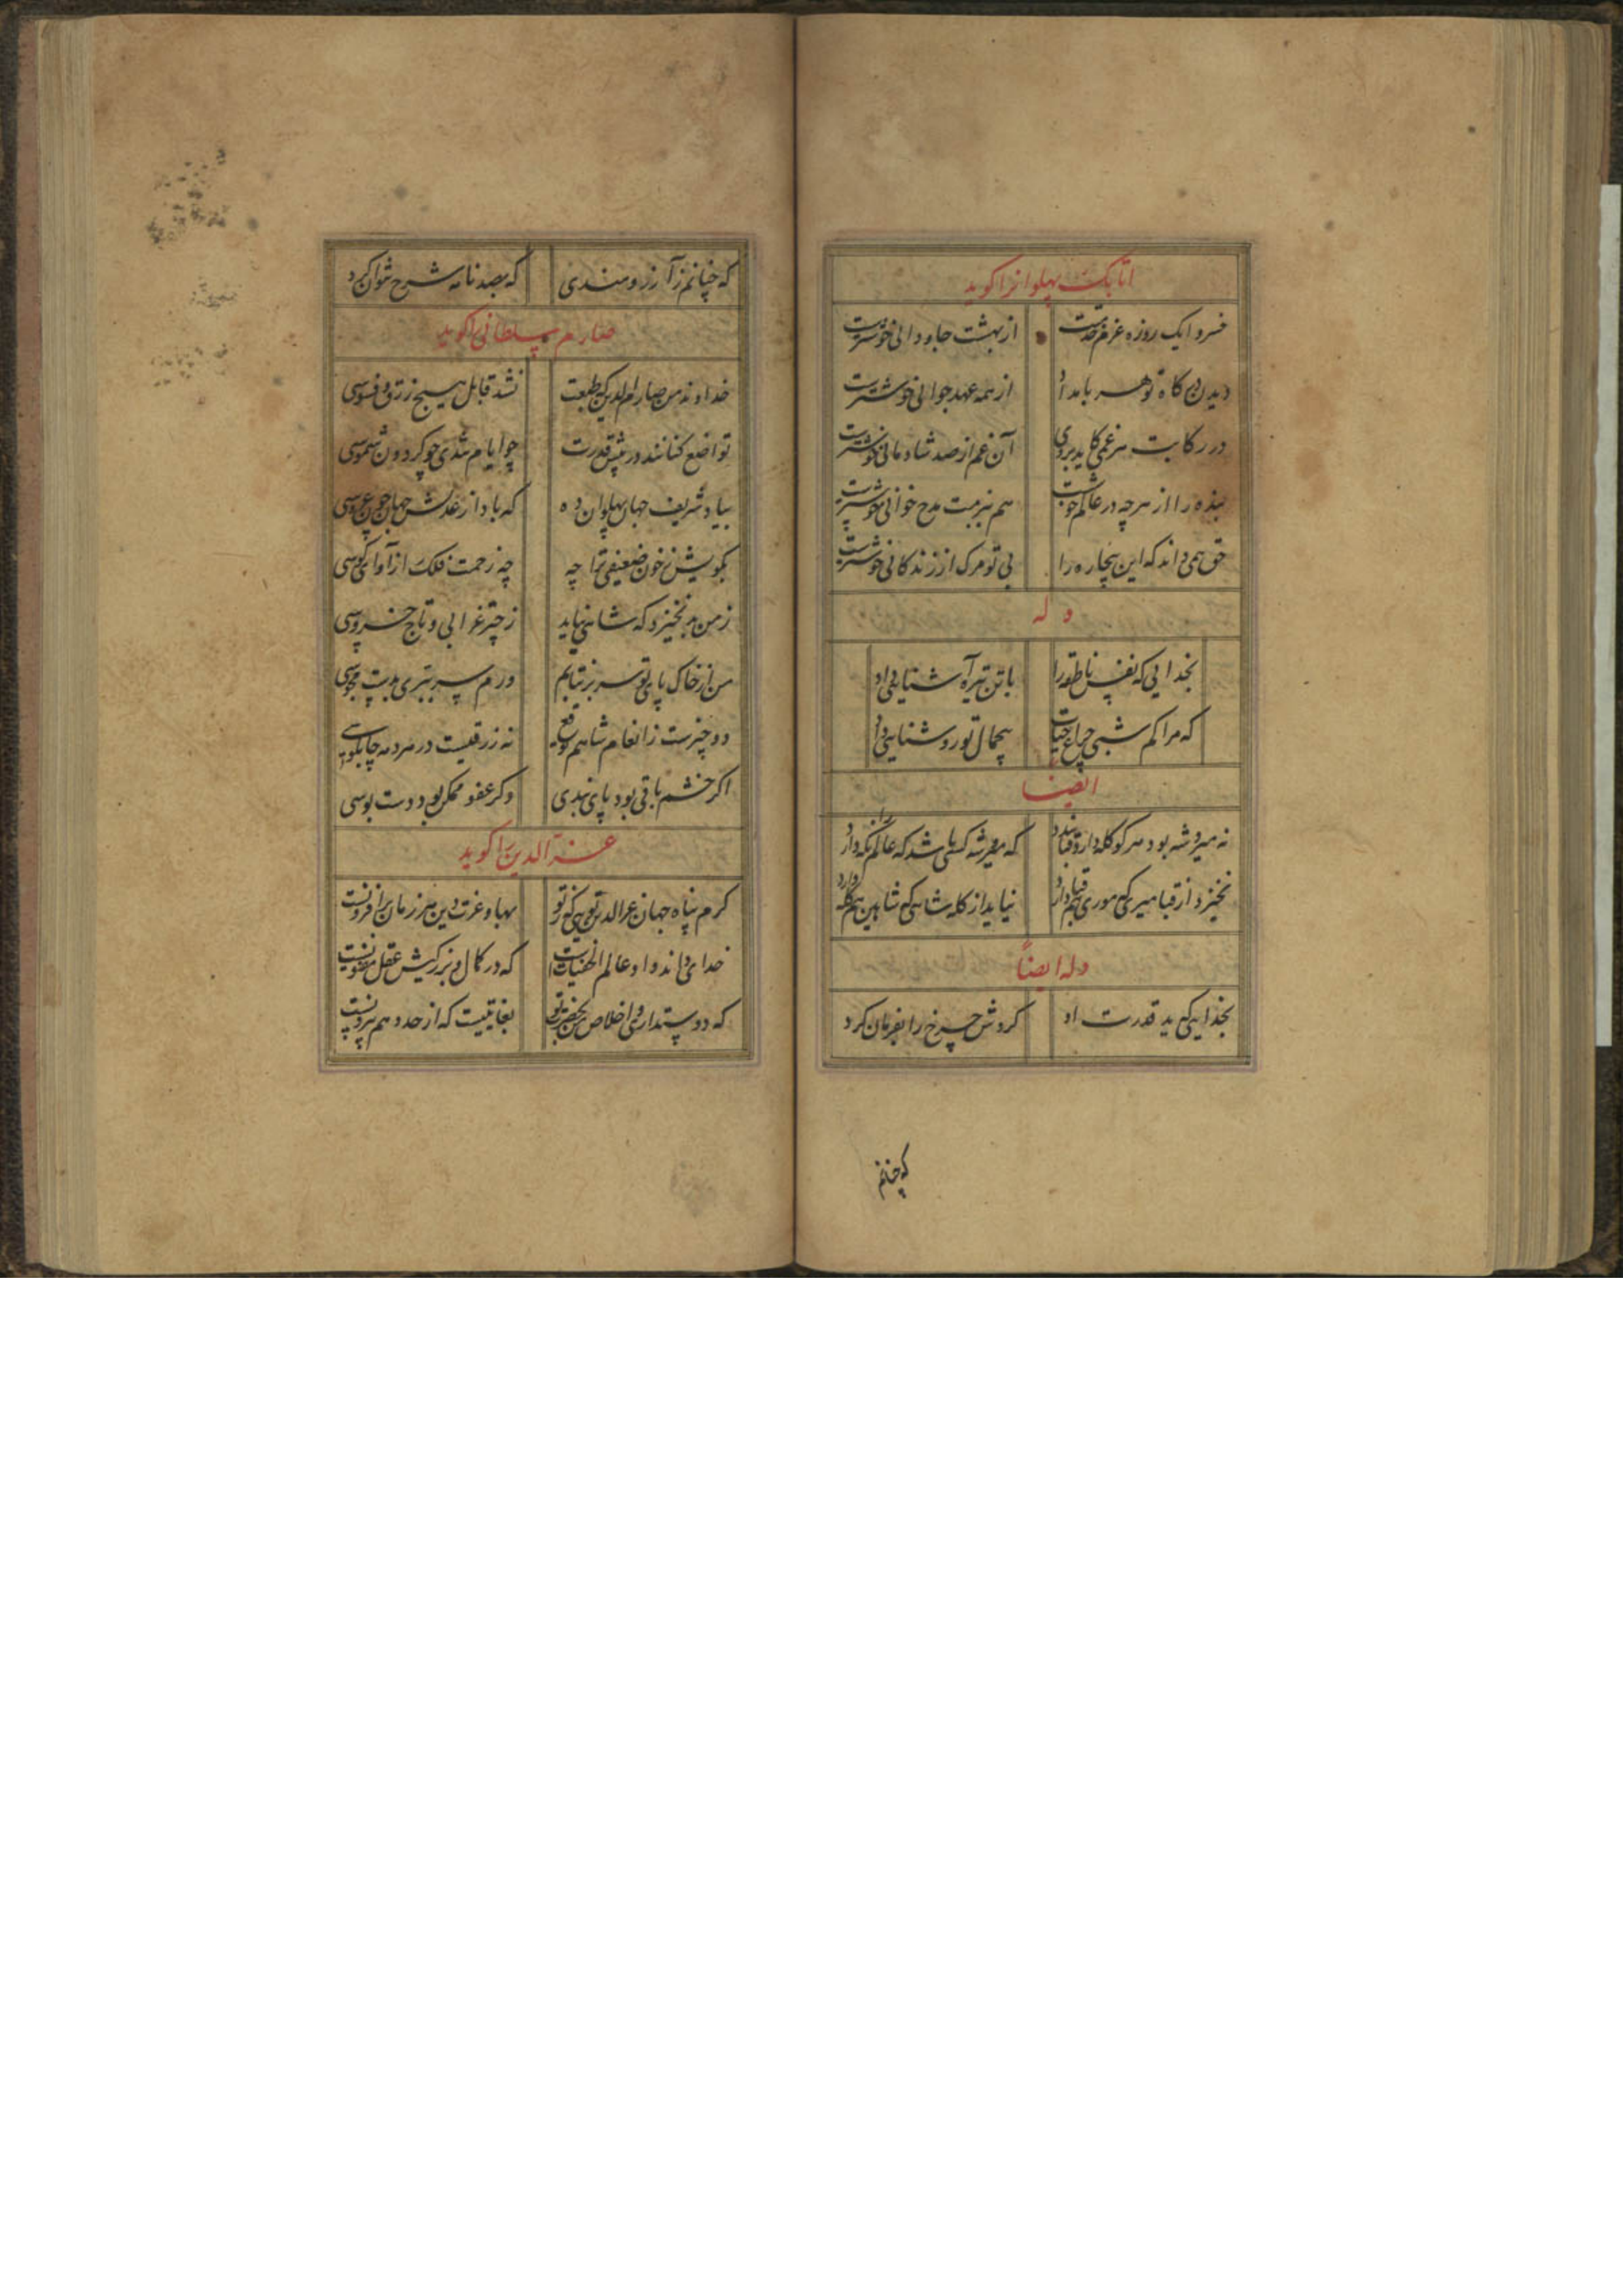 اتابک پهلوانرا کوید
خسروا یک روزه عزم خدمتت از بهشت جاودانی خوشترست
دیدن درکاه تو هر بامداد از همه عهد جوانی خوشترست
در رکابت هر غمی کاید بروی آن غم از صد شادمانی خوشترست
بنده را از هرچه در عالم خوشست هم ببزمت مدح خوانی خوشترست
حق همی داند که این بیچاره را بی تو مرک از زندکانی خوشترست
وله
بخدایی که نفس ناطقه را با تن تیره آشنایی داد
که مرا کم شبی چراغ حیات بیجمال تو روشنایی داد
ایضا
نه میر و شه بود هر کو کله دارد قبا بندد که میر و شه کسی باشد که عالم را نکه دارد
نخیزد از قبا میری که موری هم قبا دارد نیاید از کله شاهی که شاهین هم کله دارد
وله ایضاً
بخدایی که ید قدرت او کردش چرخ را بفرمان کرد
که چنانم
که چنانم ز آرزومندی که بصد نامه شرح نتوان کرد
صارم سلطانی را کوید
خداوند من صارم الدین که طبعت نشد قابل هیچ زرق و فسوسی
تواضع کنانند در پیش قدرت چو ایام تندی چو کردون شموسی
بیاد شریف جهان پهلوان ده که باد از عدلش جهان چون عروسی
بکویش ز خون ضعیفی چه زحمت فلک را ز آوای کوسی
ز من برنخیزد که شاهی نیاید ز چتر غرابی و تاج خروسی
من از خاک پای تو سر برنتابم ورم سر ببری بدبت مجوسی
دو چیزست ز انعام شاهم توقع نه زرقیست در من نه چابلوسی
اکر خشم باقی بود پای بندی وکر عفو ممکن بود دست بوسی
عز الدین را کوید
کرم پناه جهان عز الدین تویی که ز تو بها و عزت دین هر زمان برافزونست
خدای داند و او عالم الخفیاتست که در کمال و بزرکیش عقل مفتونست
که دوستداری و اخلاص من بحضرت تو بغایتیست که از حد و هم بیرونست